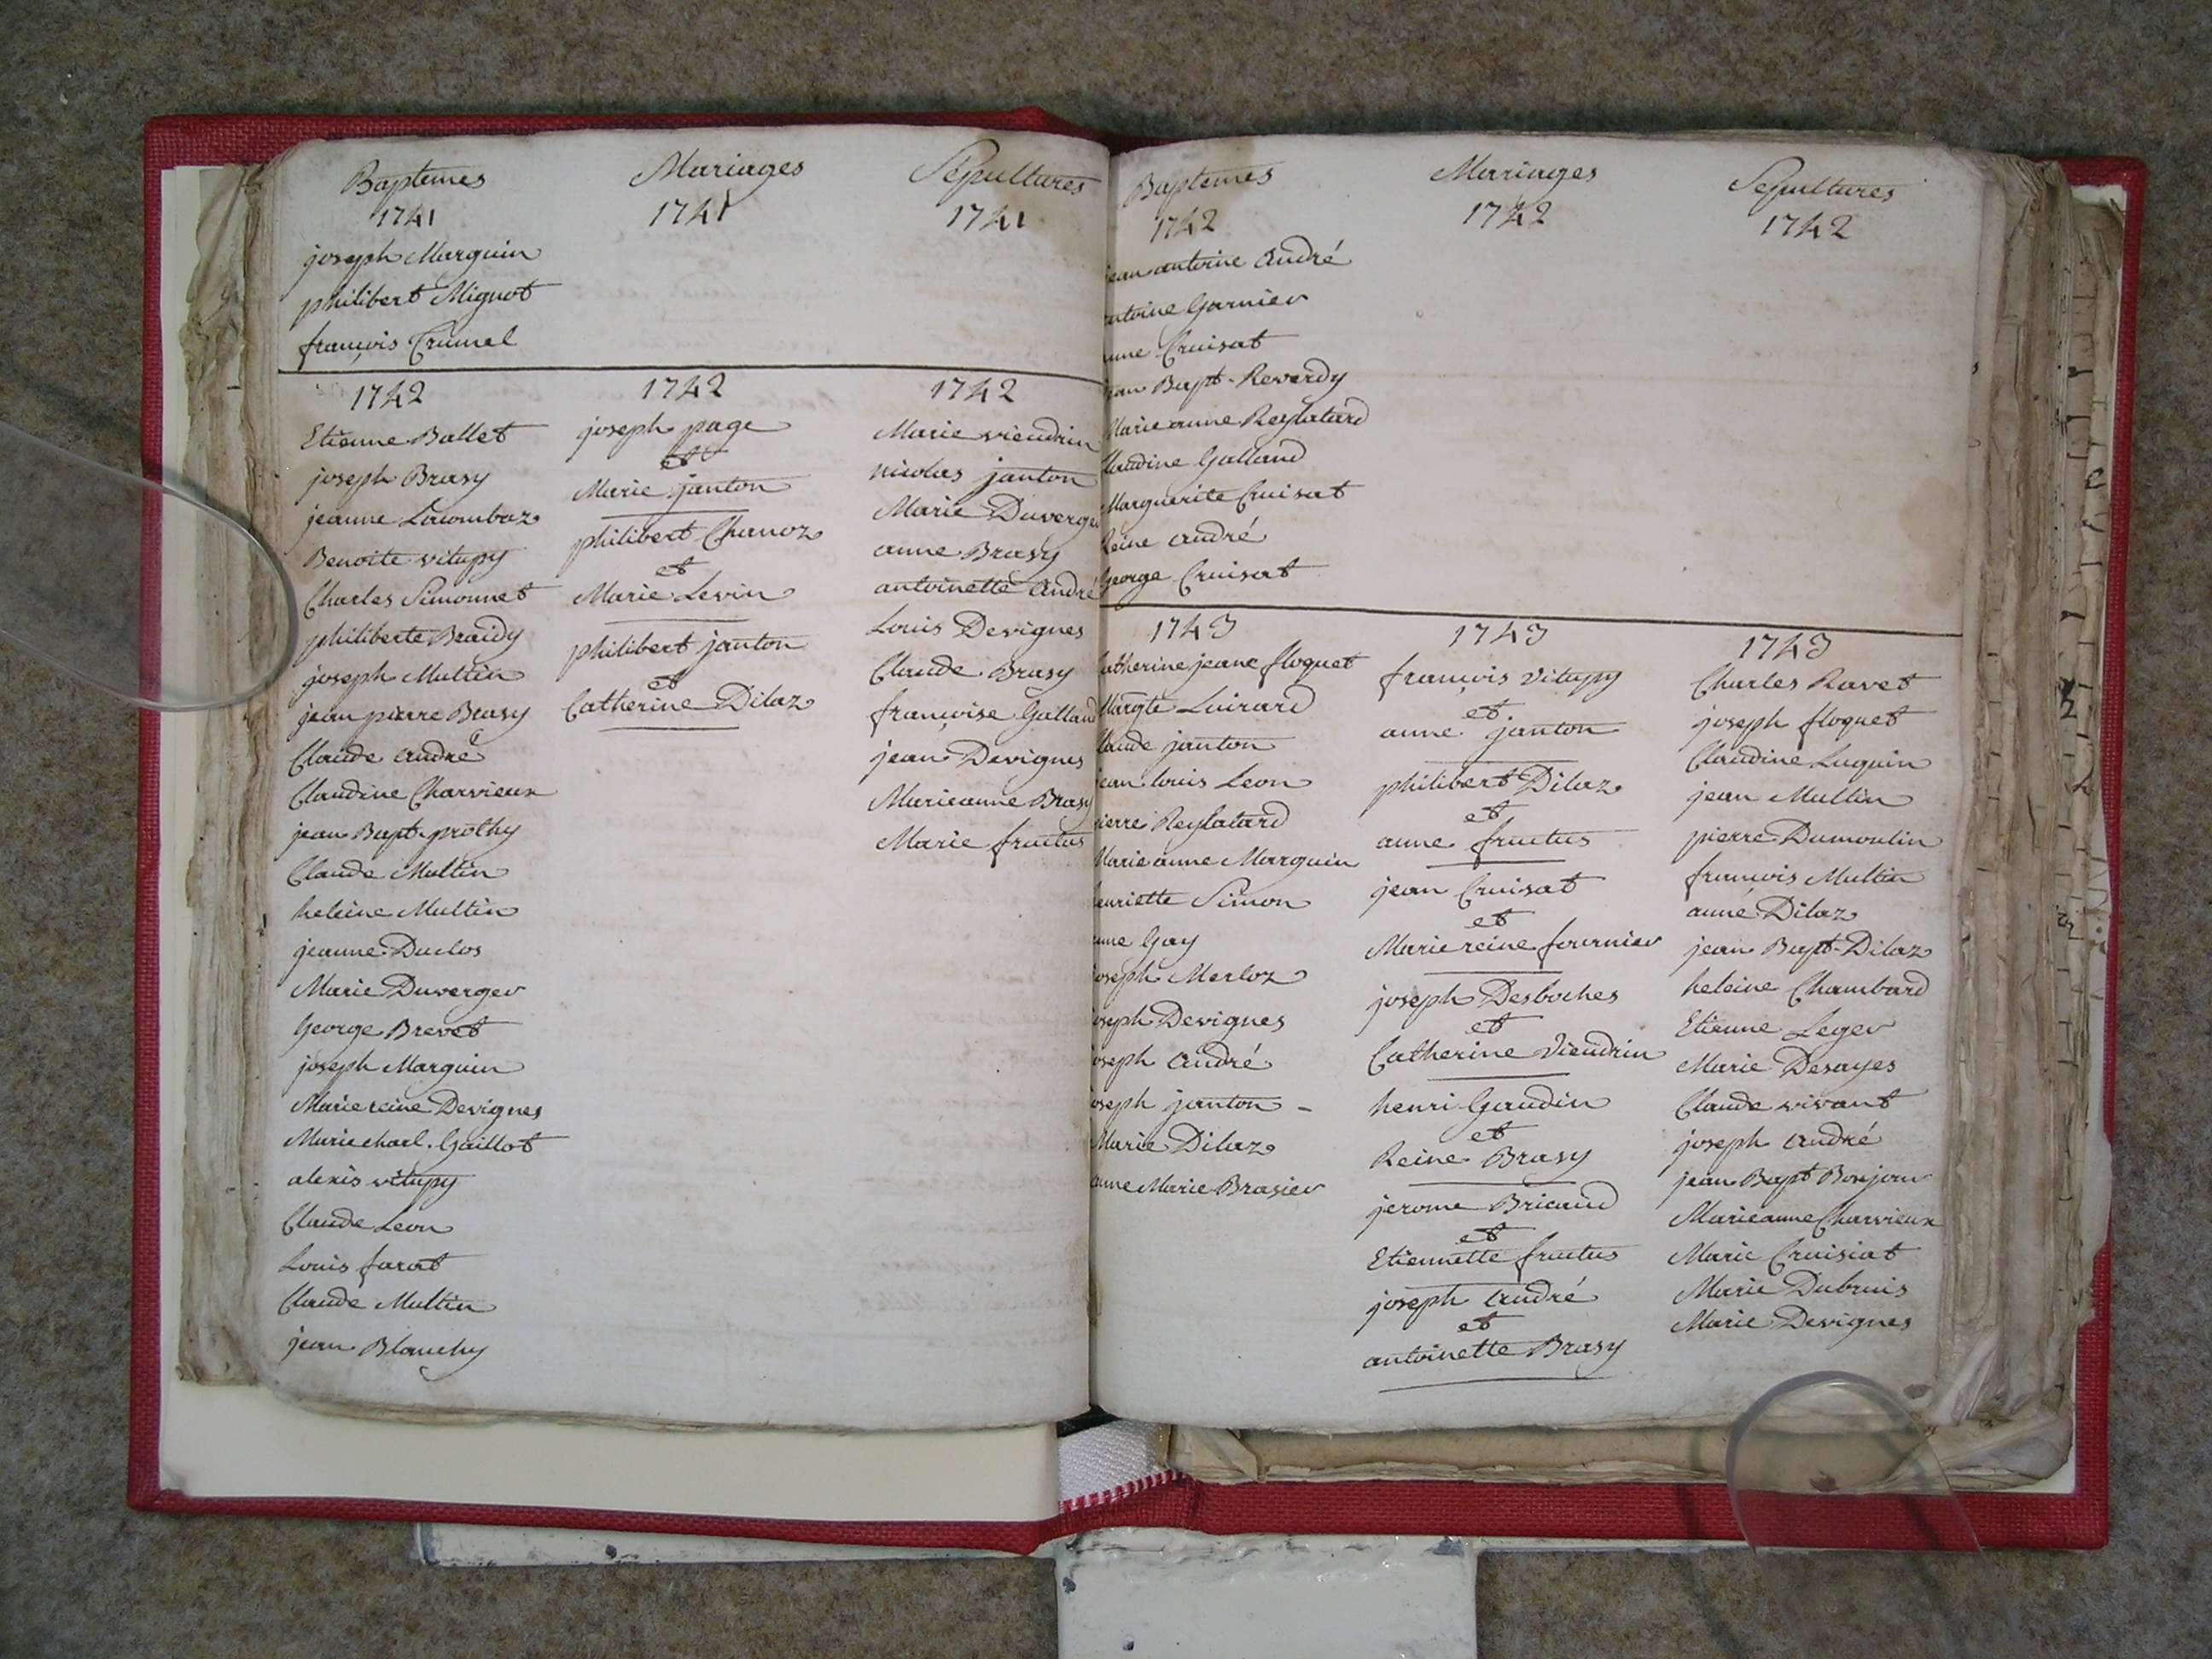 Baptemes
1741
joseph Marguin
philibert Mignot
françois Crumel
1742
Etienne Ballet
joseph Brasy
jeanne Lacombaz
Benoite vitupy
Charles Simonnet
philiberte Braidy
joseph Multin
jean pierre Brasy
Claude andré
Claudine Charvieux
jean Bapt. prothy
Claude Multin
heleine Multin
jeanne Duclos
Marie Duverger
George Brevet
joseph Marguin
Marie reine Devignes
Marie charl. Gaillot
alexis vitupy
Claude Leon
Louis farat
Claude Multin
jean Blanchy
Mariages
1741
1742
joseph page
et
Marie janton
philibert Chanoz
et
Marie Levin
philibert janton
et
Catherine Dilaz
Sepultures
1741
1742
Marie vieudrin
nicolas janton
Marie Duverge
anne Brasy
antoinette André
Louis Devignes
Claude Brasy
françoise Galland
jean Devignes
Marieanne Brasy
Marie fructus
Baptemes
1742
jean antoine André
antoine Garnier
anne Cruisat
jean Bapt. Reverdy
Marie anne Reylatard
Claudine Galland
Marguerite Cruisat
Reine andré
George Cruisat
1743
Catherine jeane floquet
Margte Luirard
Claude janton
jean louis Leon
pierre Reylatard
Marie anne Marguin
henriette Simon
anne Gay
joseph Merloz
joseph Devignes
joseph André
joseph janton -
Marie Dilaz
anne Marie Brasier
Mariages
1742
1743
françois vitupy
et
anne janton
philibert Dilaz
et
anne fructus
jean Cruisat
et
Marie reine fournier
joseph Desboches
et
Catherine vieudrin
henri Gaudin
et
Reine Brasy
jerome Bricaud
et
Etiennette fructus
joseph André
et
antoinette Brasy
Sepultures
1742
1743
Charles Ravet
joseph floquet
Claudine Luquin
jean Multin
pierre Dumoulin
françois Multin
anne Dilaz
jean Bapt. Dilaz
heleine Chambard
Etienne Leger
Marie Desayes
Claude vivant
joseph André
jean Bapt Bonjour
Marieanne Charvieux
Marie Cruisiat
Marie Dubruis
Marie Devignes